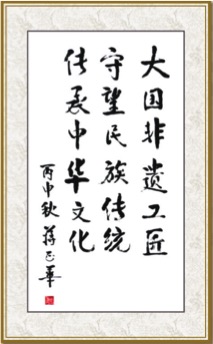 大国非遗工匠
守望民族传统
传承中华文化
丙申秋 蒋正华